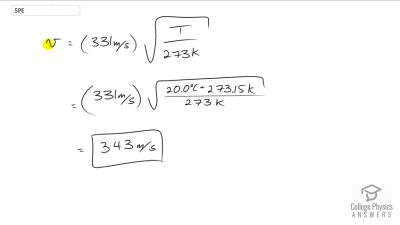 5PE
v = (331 m/s) √(T / 273 K)
= (331 m/s) √(20.0°C + 273.15 K / 273 K)
= 343 m/s
College Physics
ANSWERS